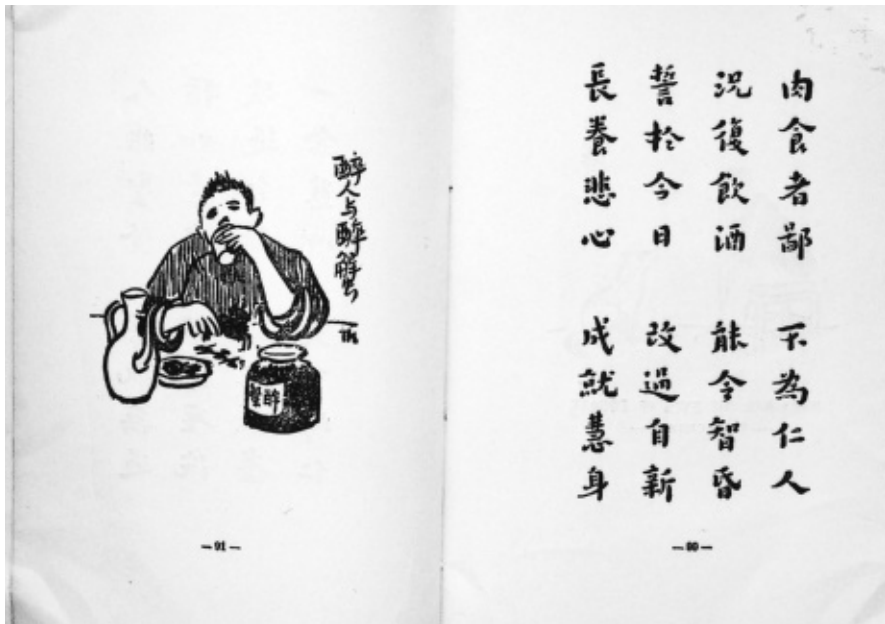 肉食者鄙　不為仁人
況復飲酒　能令智昏
誓於今日　改過自新
長養悲心　成就慧身
—90—
醉人与醉蟹
醉蟹
—91—